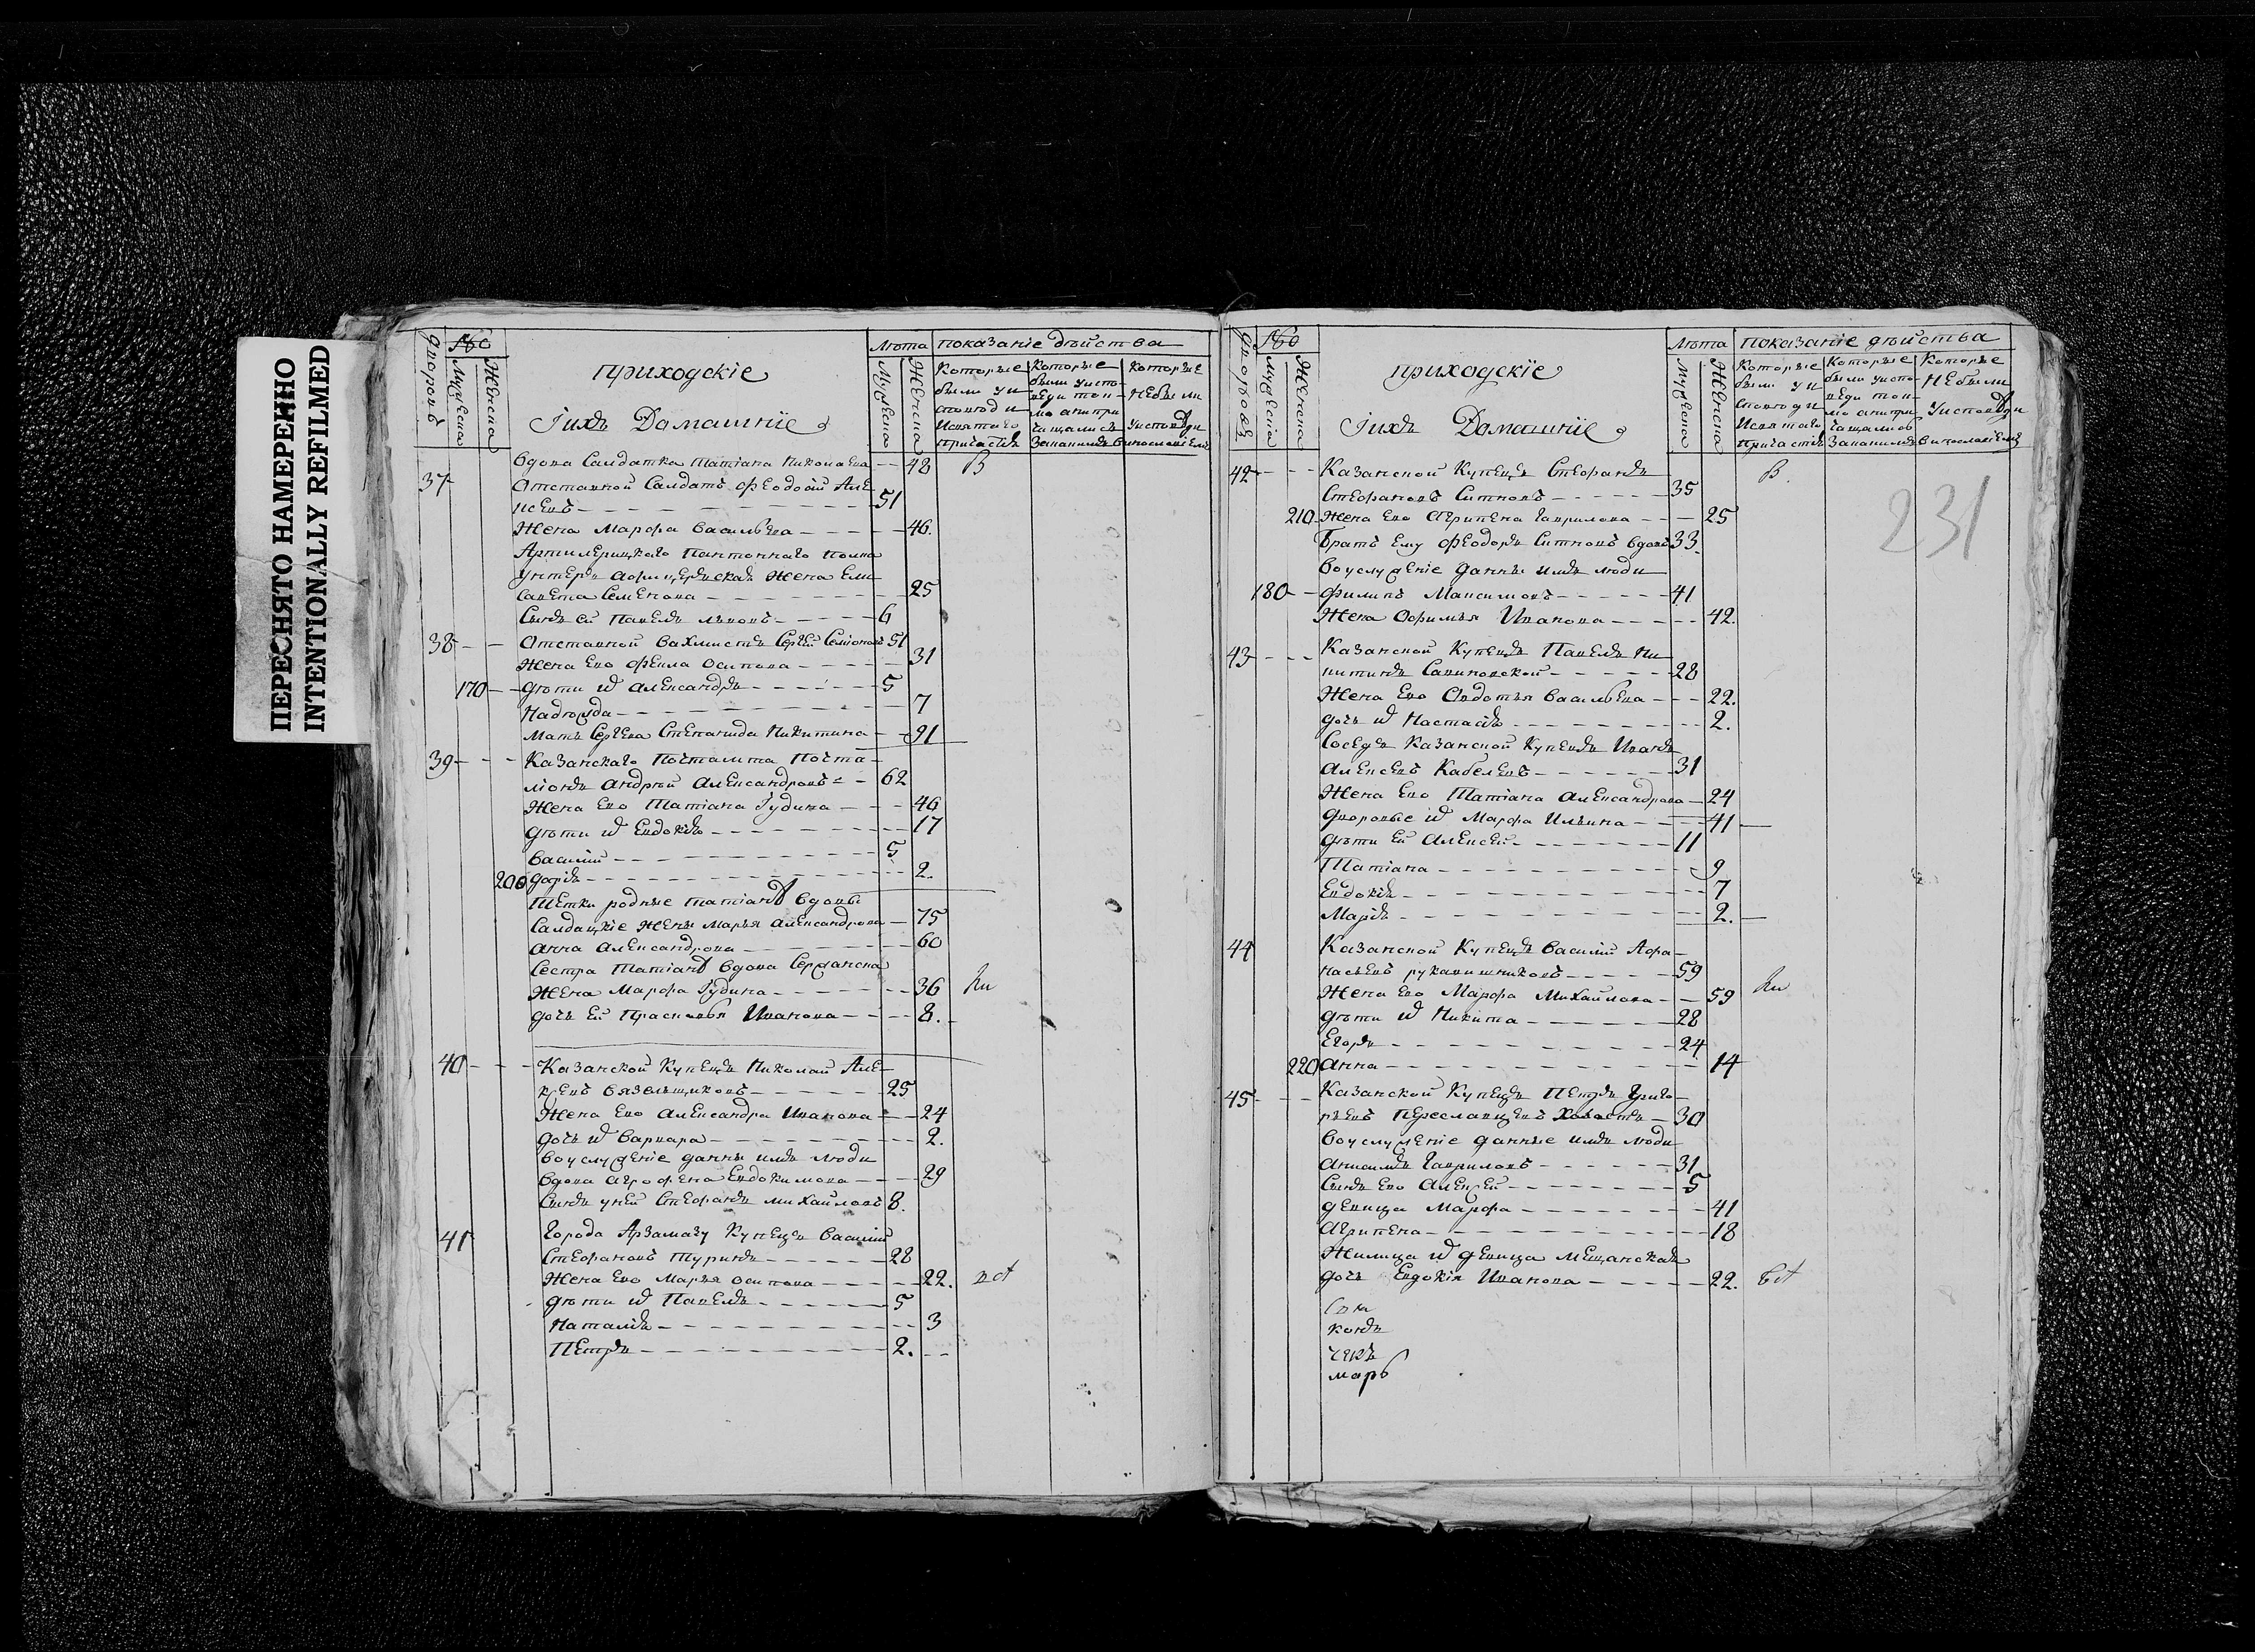 ПЕРЕСНЯТО НАМЕРЕННО
INTENTIONALLY REFILMED
дворовъ
№
Мужеска
Женска
приходскіе
Іихъ Домашніе
Лѣта
Мужеска
Женска
показаніе дѣйства
Которые были у исповѣди и святаго причастія
Которые были у исповеди токмо а не причащались
Которые не были у исповѣди
вдова Салдатка Татіана Николаева 48 В
37 Отставной Салдатъ Феодосій Але
ксевъ 51
Жена Марфа Васильева 46.
Артилерицкаго понтоннаго полка
унтеръ афицерьская Жена Ели
савета Семенова 25
Сынъ ей Павелъ Львовъ 6
38 Отставной Вахмистръ Сергей Семіоновъ 51
Жена Ево Фекла Осипова 31
170 дѣти и Александръ 5
Надежда 7
Мать Сергева Степанида Никитина 91
39 Казанскаго Почтамта Почта
ліонъ Андрей Александровъ 62
Жена Ево Татіана Гудина 46
дѣти и Евдокія 17
Василій 5
200 Дарія 2.
Тетки родные Татіанѣ вдовы
Салдацкіе Жены Марья Александрова 75
Анна Александрова 60
Сестра Татіанѣ вдова Сержанска
Жена Марфа Гудина 36
дочь ей Прасковья Иванова 8.
40 Казанской Купецъ Николай Але
ксевъ Вязельщиковъ 25
Жена Ево Александра Иванова 24
дочь и Варвара 2.
воуслуженіе данны имъ люди
вдова Агрофена Евдокимова 29
Сынъ уней Стефанъ Михайловъ 8.
41 Города Арзамазу Купецъ Василій
Стефановъ Туринъ 28
Жена Ево Марья Осипова 22.
дѣти и Павелъ 5
Наталія 3
Петръ 2.
дворовъ
№
Мужеска
Женска
приходскіе
Іихъ Домашніе
Лѣта
Мужеска
Женска
показаніе дѣйства
Которые были у исповѣди и святаго причастія
Которые были у исповеди токмо а не причащались
Которые не были у исповѣди
231
42 Казанской Купецъ Стефанъ В
Стефановъ Ситновъ 35
210 Жена Ево Агрипена Гаврилова 25
Братъ Ему Феодоръ Ситновъ вдовъ 33
воуслуженіе данны имъ люди
180 Филипъ Максимовъ 41
Жена Офимья Иванова 42.
43 Казанской Купецъ Павелъ Ни
китинъ Савиновской 28
Жена Ево Овдотья Васильева 22.
дочь и Настасія 2.
Соседъ Казанской Купецъ Иванъ
Алексевъ Кабелевъ 31
Жена Ево Татіана Александрова 24
дворовые и Марфа Ильина 41
дѣти ей Алексей 11
Татіана 9
Евдокія 7
Марія 2.
44 Казанской Купецъ Василій Афа
насьевъ Рукавишниковъ 59
Жена Ево Марфа Михайлова 59
дѣти и Никита 28
Егоръ 24
220 Анна 14
45 Казанской Купецъ Петръ Григо
рьевъ Переславцевъ Холостъ 30
воуслуженіе данные имъ люди
Анисимъ Гавриловъ 31
Сынъ Ево Алексей 5
девица Марфа 41
Агрипена 18
Жилица и девица мещанская
дочь Евдокія Иванова 22.